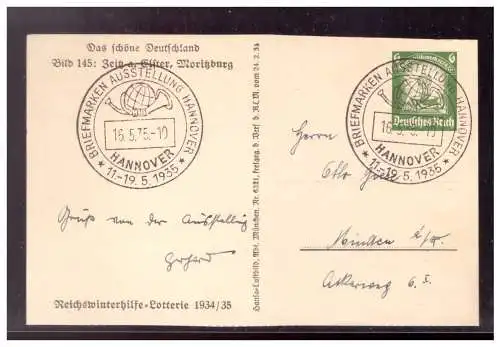 Das schöne Deutschland
Bild 145: Zeitz a. Elster, Moritzburg
BRIEFMARKEN AUSSTELLUNG HANNOVER
16.5.35.-10
HANNOVER
* 11.-19.5.1935 *
Gruß von der Ausstellung
Gerhard
Reichswinterhilfe-Lotterie 1934/35
Hansa-Luftbild, Abt. München, Nr. freigeg. d. Verf. d. RLM. vom 24.2.34
6
Deutsches Reich
BRIEFMARKEN AUSSTELLUNG HANNOVER
HANNOVER
* 11.-19.5.1935 *
Herrn
Otto
Minden i/W.